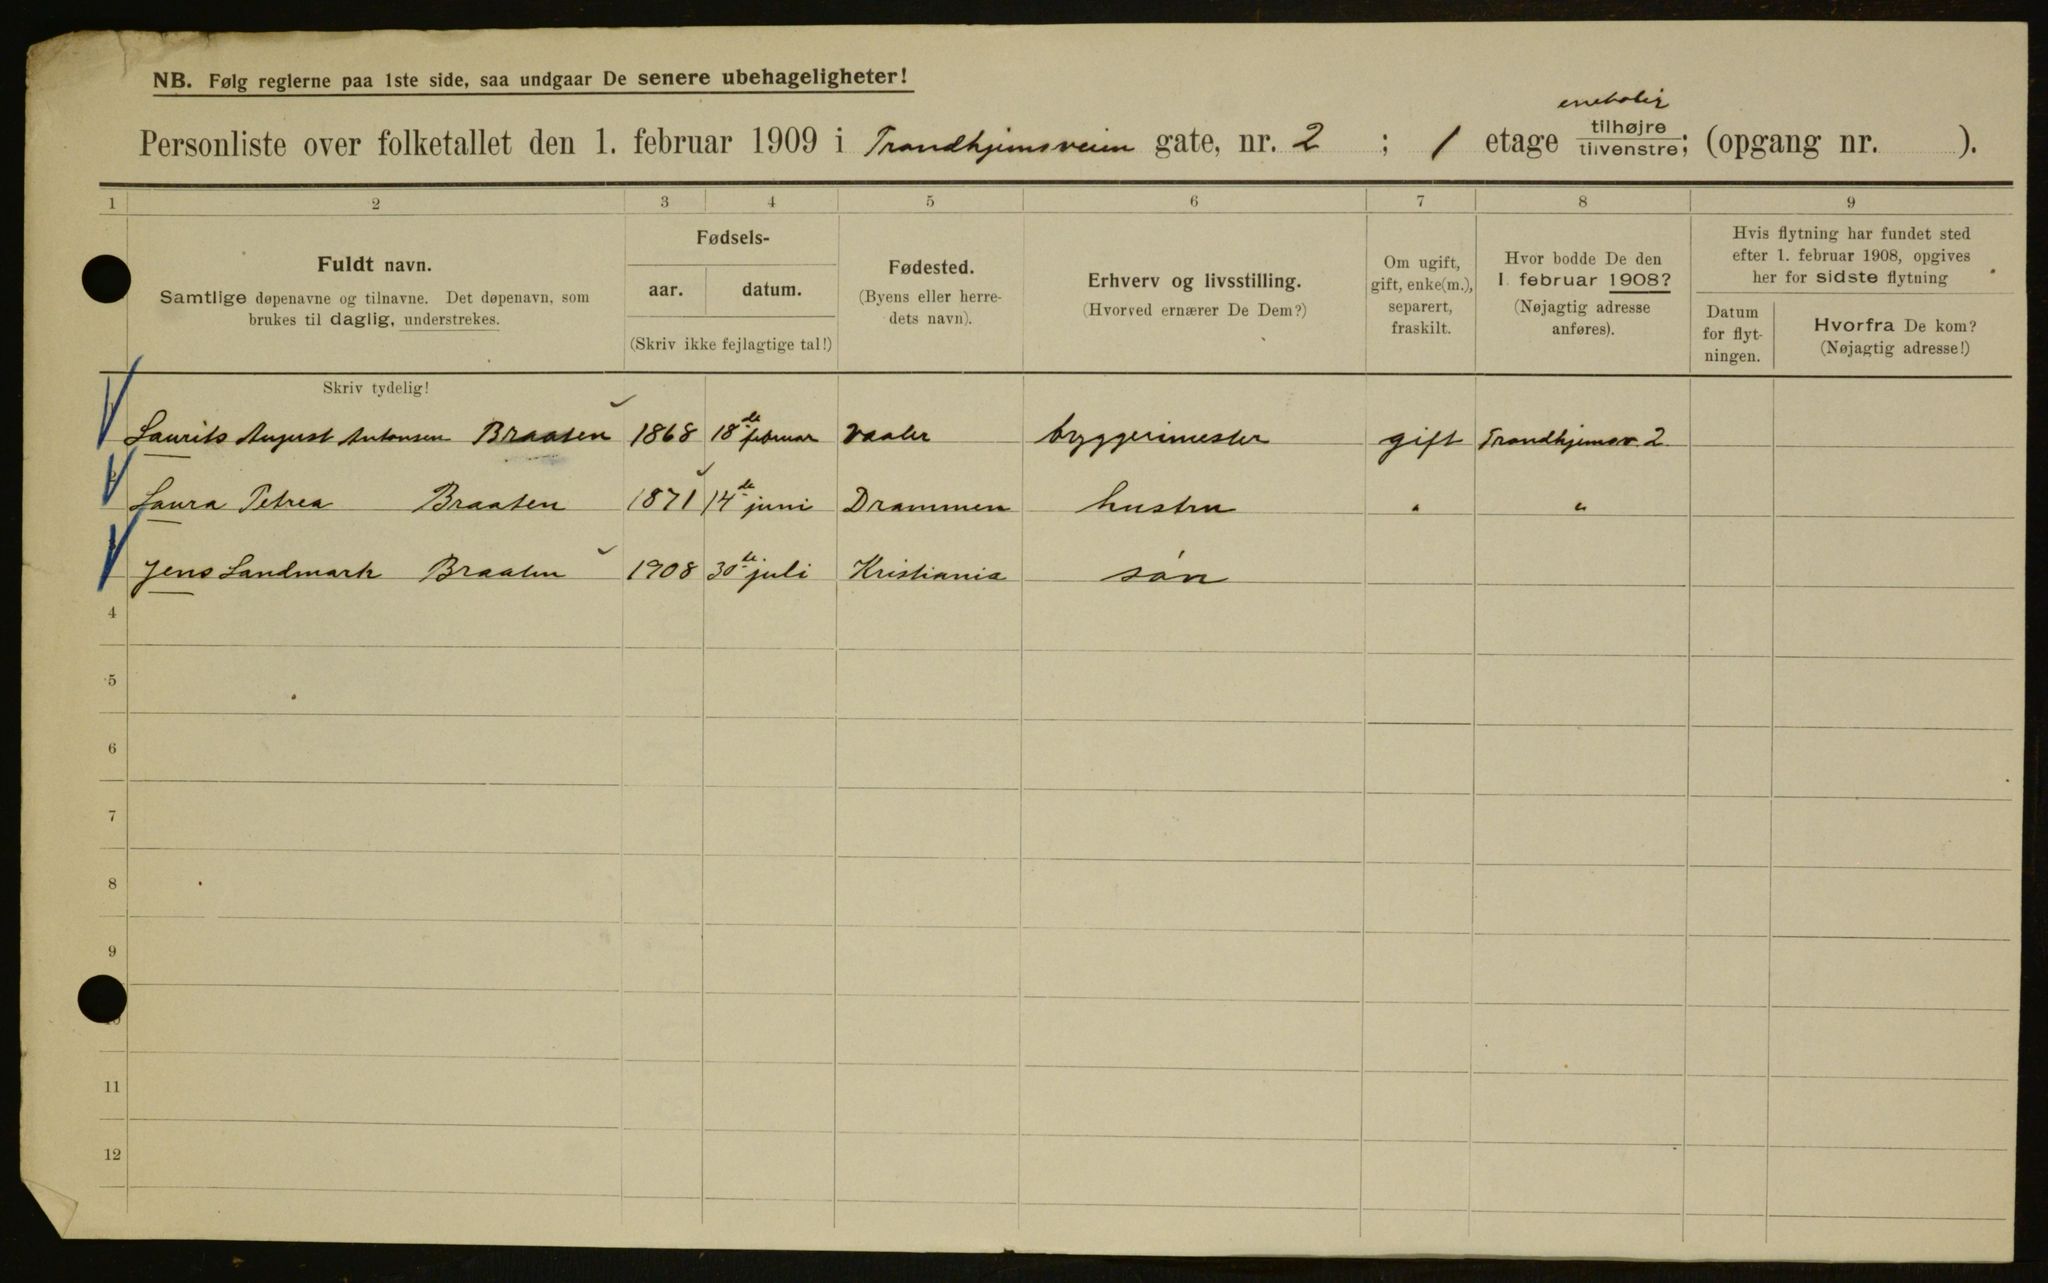 NB. Følg reglerne paa 1ste side, saa undgaar De senere ubehageligheter!
enebolig
Personliste over folketallet den 1. februar 1909 i Trondhjemsveien gate, nr. 2 ; 1 etage tilhøjre tilvenstre; (opgang nr. ).
1 2 3 4 5 6 7 8 9
Fuldt navn.
Samtlige døpenavne og tilnavne. Det døpenavn, som
brukes til daglig, understrekes.
Fødsels-
aar. datum.
(Skriv ikke fejlagtige tal!)
Fødested.
(Byens eller herre-
dets navn).
Erhverv og livsstilling.
(Hvorved ernærer De Dem?)
Om ugift,
gift, enke(m.),
separert,
fraskilt.
Hvor bodde De den
1. februar 1908?
(Nøjagtig adresse
anføres).
Hvis flytning har fundet sted
efter 1. februar 1908, opgives
her for sidste flytning
Datum
for flyt-
ningen.
Hvorfra De kom?
(Nøjagtig adresse!)
Skriv tydelig!
Laurits August Antonsen Braaten 1868 18de februar Vaaler byggerimester gift Trondhjemsv. 2
Laura Petrea Braaten 1871 14de juni Drammen hustru " "
Jens Landmark Braaten 1908 30te juli Kristiania søn
4
5
6
7
8
9
10
11
12